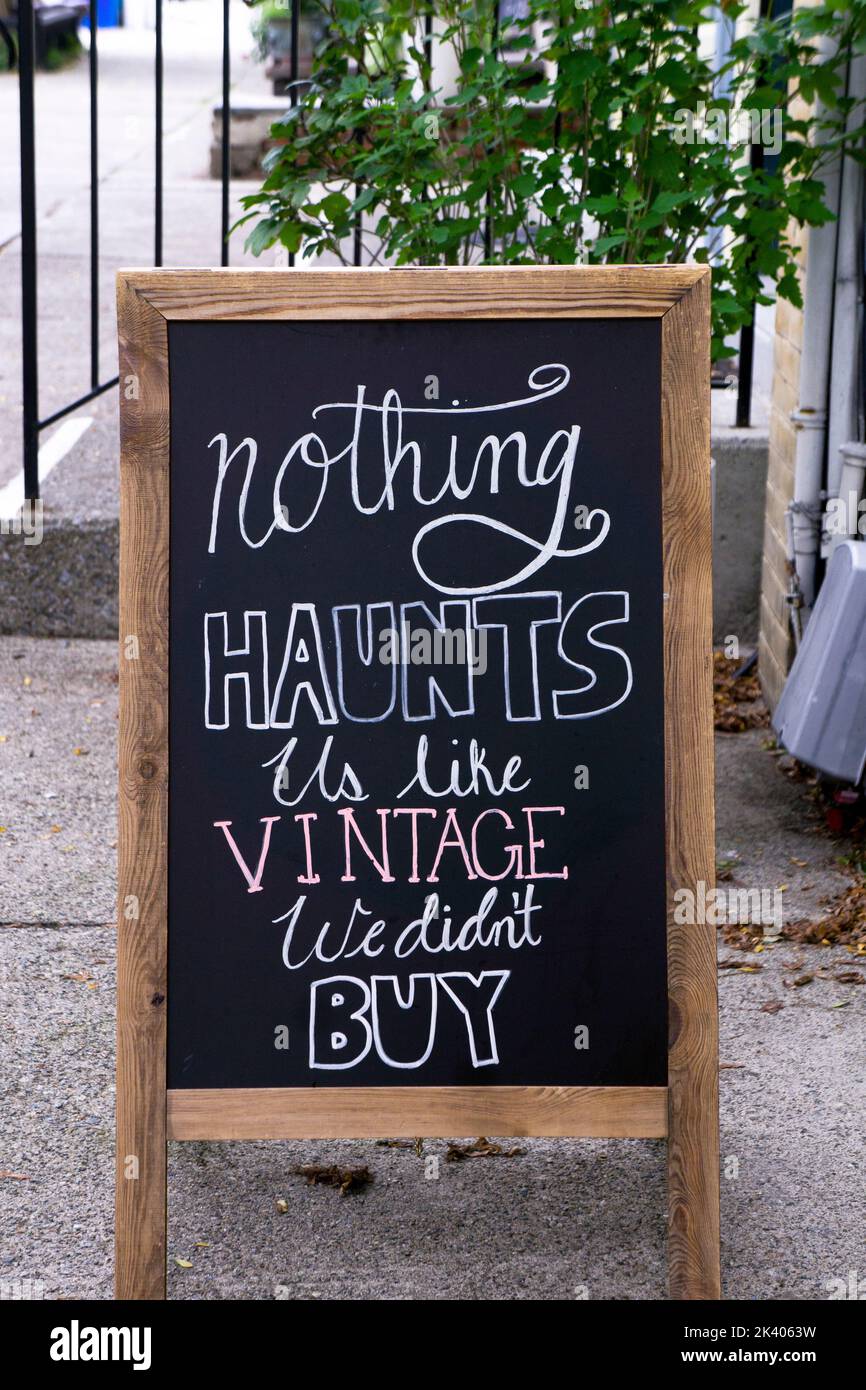 nothing
HAUNTS
Us like
VINTAGE
We didn't
BUY
alamy
Image ID: 2K4063W
www.alamy.com